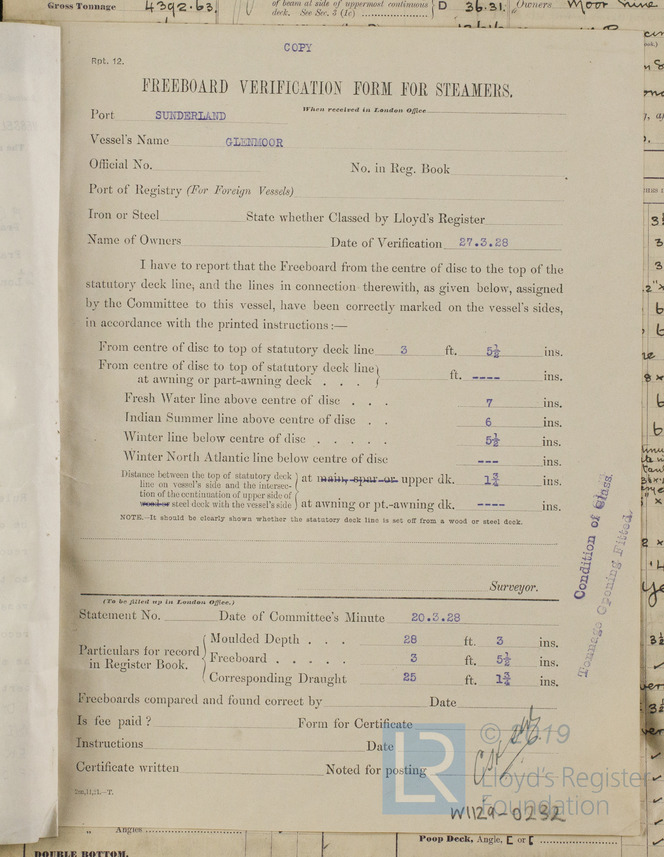 Gross Tonnage 4392.63.
of beam at side of uppermost continuous
deck. See Sec. 3 (1c)
D 36.31.
Owners Moor Line
COPY
Rpt. 12.
FREEBOARD VERIFICATION FORM FOR STEAMERS.
When received in London Office
Port SUNDERLAND
Vessel's Name GLENMOOR
Official No. No. in Reg. Book
Port of Registry (For Foreign Vessels)
Iron or Steel State whether Classed by Lloyd's Register
Name of Owners Date of Verification 27.3.28
I have to report that the Freeboard from the centre of disc to the top of the
statutory deck line, and the lines in connection therewith, as given below, assigned
by the Committee to this vessel, have been correctly marked on the vessel's sides,
in accordance with the printed instructions:—
From centre of disc to top of statutory deck line 3 ft. 5½ ins.
From centre of disc to top of statutory deck line
at awning or part-awning deck . . . ft. ---- ins.
Fresh Water line above centre of disc . . . 7 ins.
Indian Summer line above centre of disc . . 6 ins.
Winter line below centre of disc . . . . . 5½ ins.
Winter North Atlantic line below centre of disc --- ins.
Distance between the top of statutory deck
line on vessel's side and the intersec-
tion of the continuation of upper side of
wood or steel deck with the vessel's side
at main, spar or upper dk. 1¾ ins.
at awning or pt.-awning dk. ---- ins.
NOTE.—It should be clearly shown whether the statutory deck line is set off from a wood or steel deck.
Condition of Class.
Tonnage Opening Fitted.
Surveyor.
(To be filled up in London Office.)
Statement No. Date of Committee's Minute 20.3.28
Particulars for record
in Register Book.
Moulded Depth . . . 28 ft. 3 ins.
Freeboard . . . . . 3 ft. 5½ ins.
Corresponding Draught 25 ft. 1¾ ins.
Freeboards compared and found correct by Date
Is fee paid ? Form for Certificate
Instructions Date
Certificate written Noted for posting
2m,14,21.—T.
LR
© 2019
Lloyd's Register
Foundation
W1129-0232
Angles
Poop Deck, Angle, [ or [
DOUBLE BOTTOM.